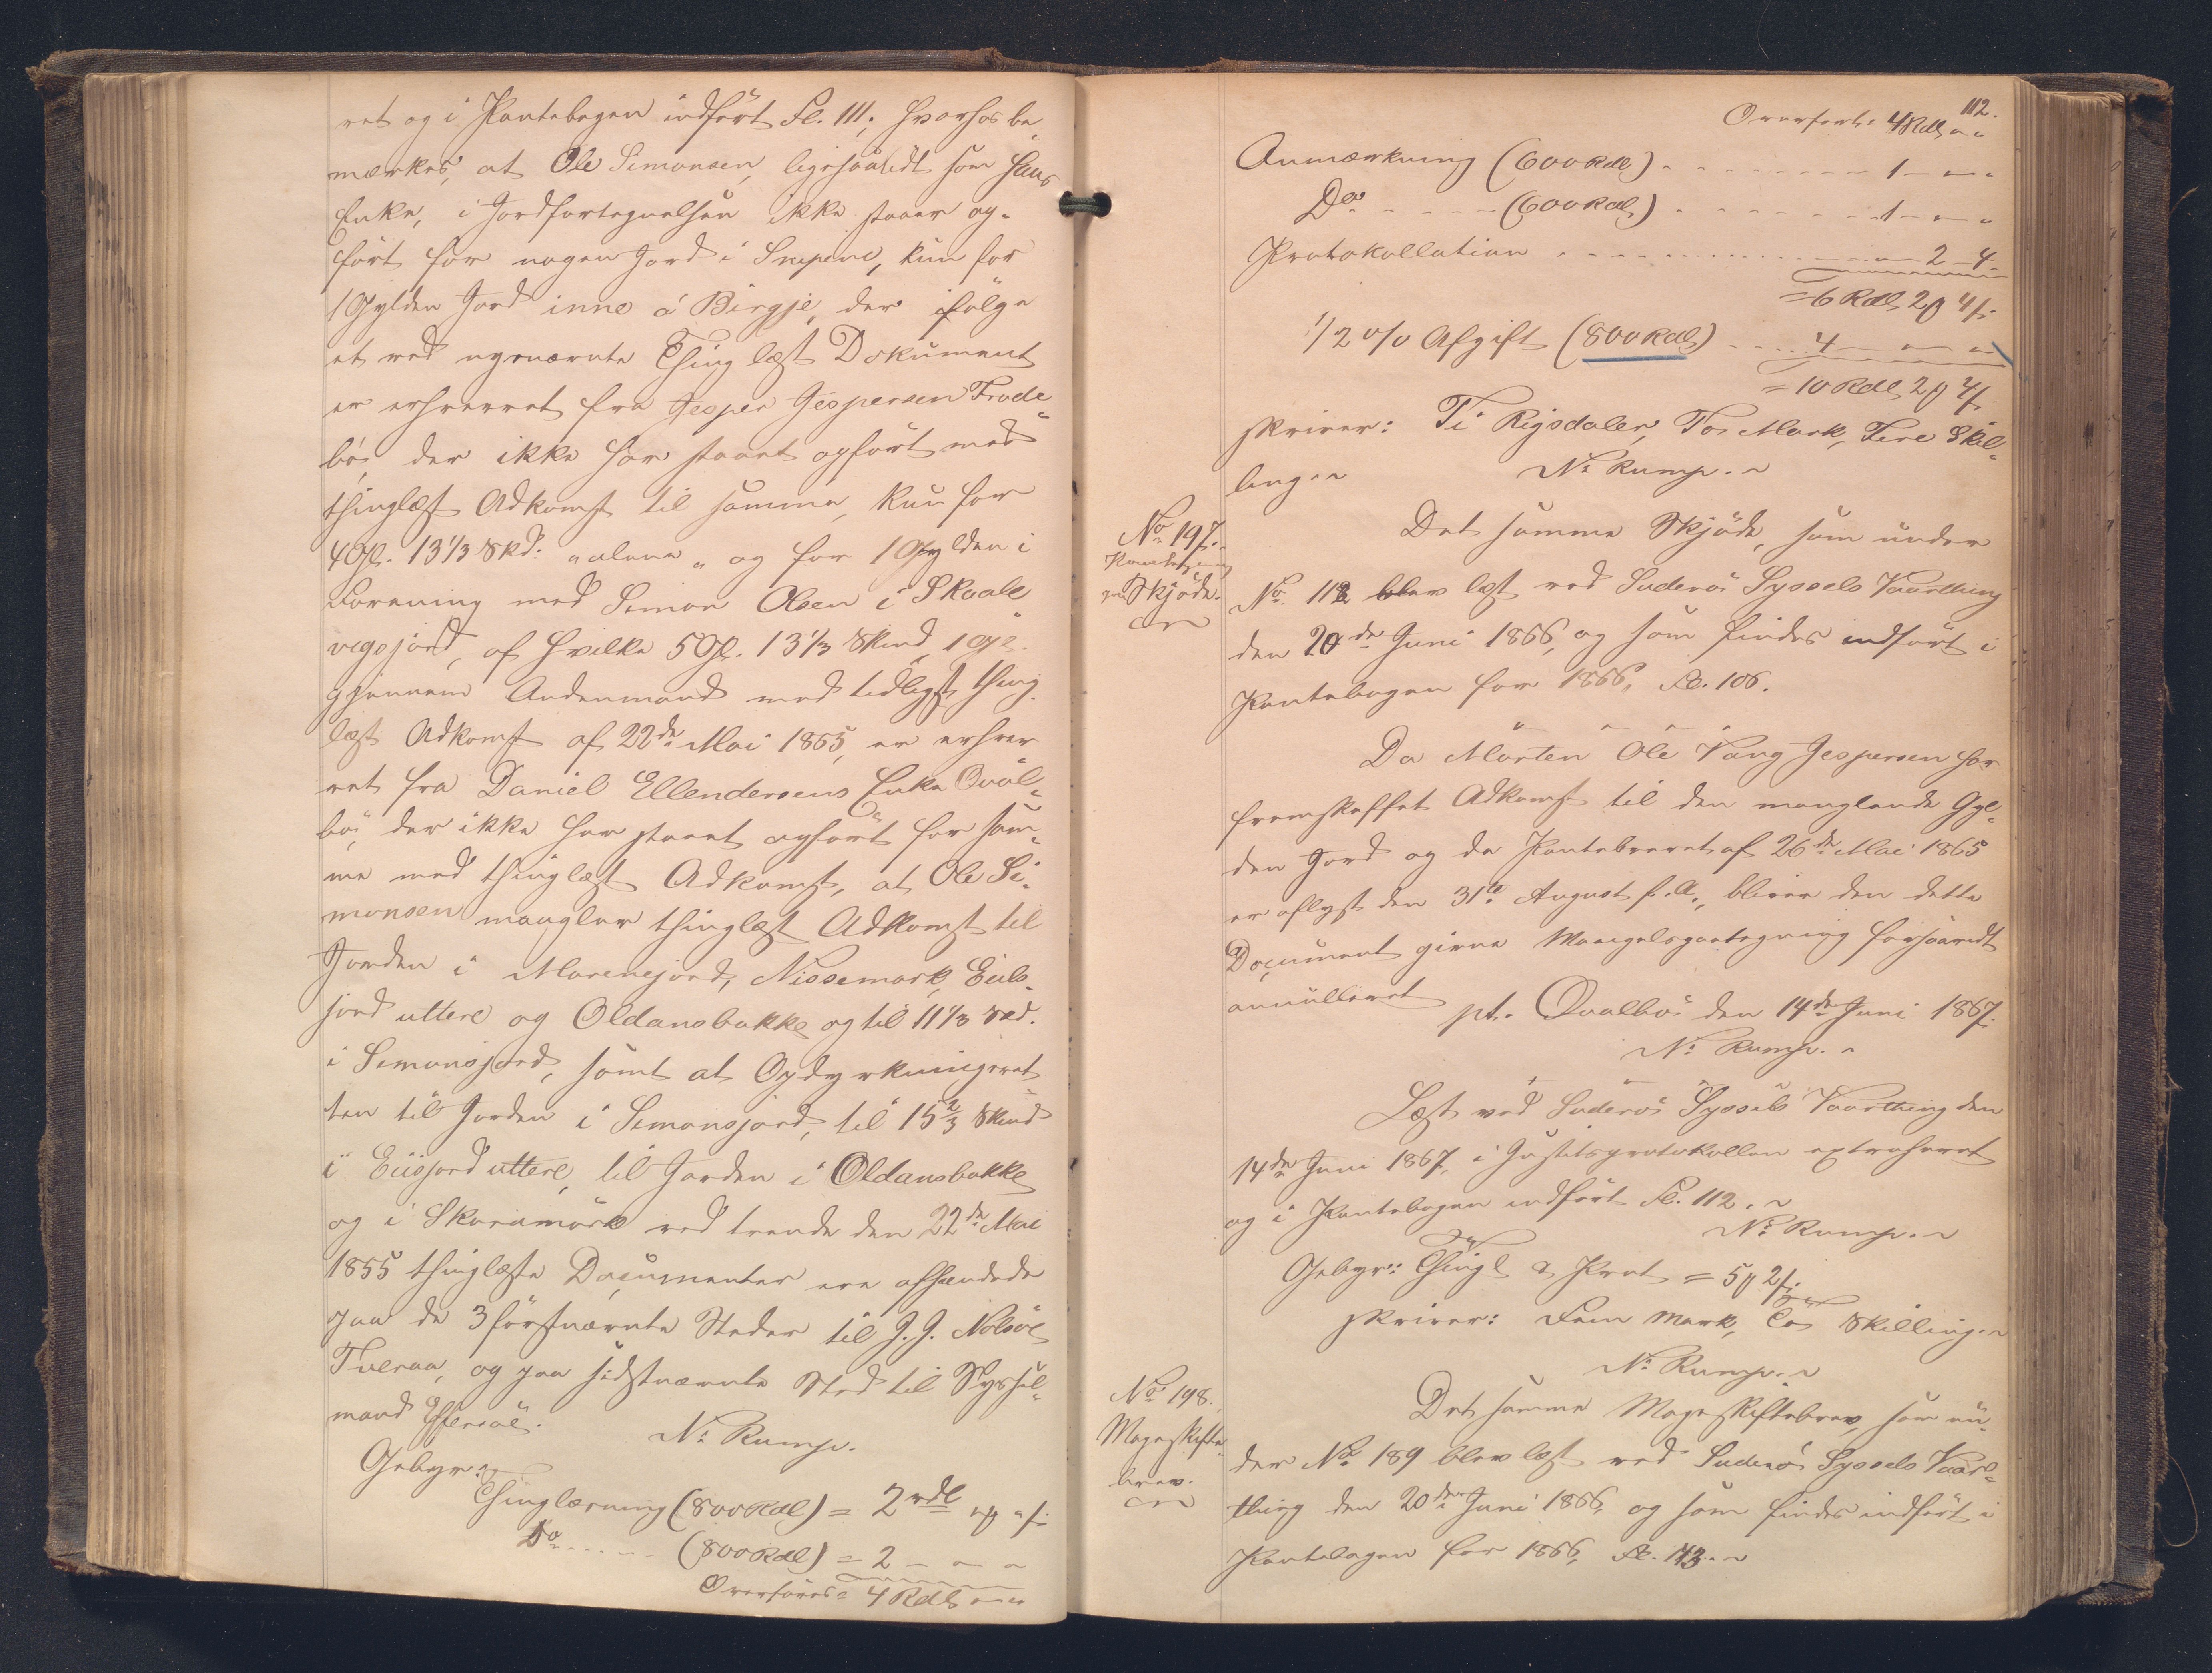 ret og i Pantebogen indført Fl. 111; hvorhos be
mærkes, at Ole Simonsen, ligesaalidt som hans
Enke, i Jordfortegnelsen ikke staar op-
ført for nogen Jord i Snepene, kun for
1 Gylden Jord inne á Birgje, der ifølge
et ved nysnævnte Thing læst Dokument
er erhvervet fra Jesper Jespersen Frode
bø, der ikke har staaet opført med
thinglæst Adkomst til samme, kun for
4 Gl. 13 1/3 Skd: "alene" og for 1 Gylden i
Forening med Simon Olsen i Skaale
vegsjord, af hvilke 5 Gl. 13 1/3 Skind, 1 Gl.
gjennem Andenmand med tidligst thing
læst Adkomst af 22de Mai 1855, er erhver
vet fra Daniel Ellendersens Enke Qval-
bø, der ikke har staaet opført for sam-
me med thinglæst Adkomst, at Ole Si-
monsen mangler thinglæst Adkomst til
Jorden i Marenejord, Nissemark, Eiils-
jord uttere og Oldansbakke og til 11 1/3 Skd.
i Simonsjord, samt at Opdyrkningsret
ten til Jorden i Simonsjord, til 15 2/3 Skind
i Eiisjord uttere, til Jorden i Oldansbakke
og i Skaramörk ved trende den 22de Mai
1855 thinglæste Documenter ere afhændede
paa de 3 förstnævnte Steder til J. J. Nolsöe
Tveraa, og paa sidstnævnte Sted til Syssel-
mand Effersøe.
N: Rump.
Gebyr:
Thinglæsning (800 Rdl) = 2 rdl " β " f.
Do. (800 Rdl) = 2 - " - "
Overføres = 4 Rdl " - "
112.
Overført: 4 Rdl " - "
Anmærkning (600 Rdl) 1 - " - "
Do (600 Rdl) 1 - " - "
Protokollation " - 2 - 4.
= 6 Rdl 2 β 4 f.
1/2 o/o Afgift (800 Rdl) 4 - " - "
= 10 Rdl 2 β 4 f.
skriver: Ti Rigsdaler, To Mark, Fire Skil-
ling.
N: Rump.
No 197.
Skjøde.
Det samme Skjøde, som under
No. 112 blev læst ved Suderø Syssels Vaarthing
den 20de Juni 1866, og som findes indført i
Pantebogen for 1866, Fl. 106.
Da Morten Ole Vang Jespersen har
fremskaffet Adkomst til den manglende Gyl-
den Jord og da Pantebrevet af 26de Mai 1865
er aflyst den 31te August f. A., bliver den dette
Document givne Mangelspaategning forsaavidt
annulleret
pt. Qvalbø den 14de Juni 1867.
N: Rump.
Læst ved Suderø Syssels Vaarthing den
14de Juni 1867, i Justitsprotokollen extraheret
og i Pantebogen indført Fl. 112.
N: Rump.
Gebyr: Thingl & Prot = 5 β 2 f.
skriver: Fem Mark, To Skilling.
N: Rump.
No 198.
Mageskifte
brev.
Det samme Mageskiftebrev, som un-
der No 189 blev læst ved Suderø Syssels Vaar-
thing den 20de Juni 1866, og som findes indført i
Pantebogen for 1866, Fl. 113.